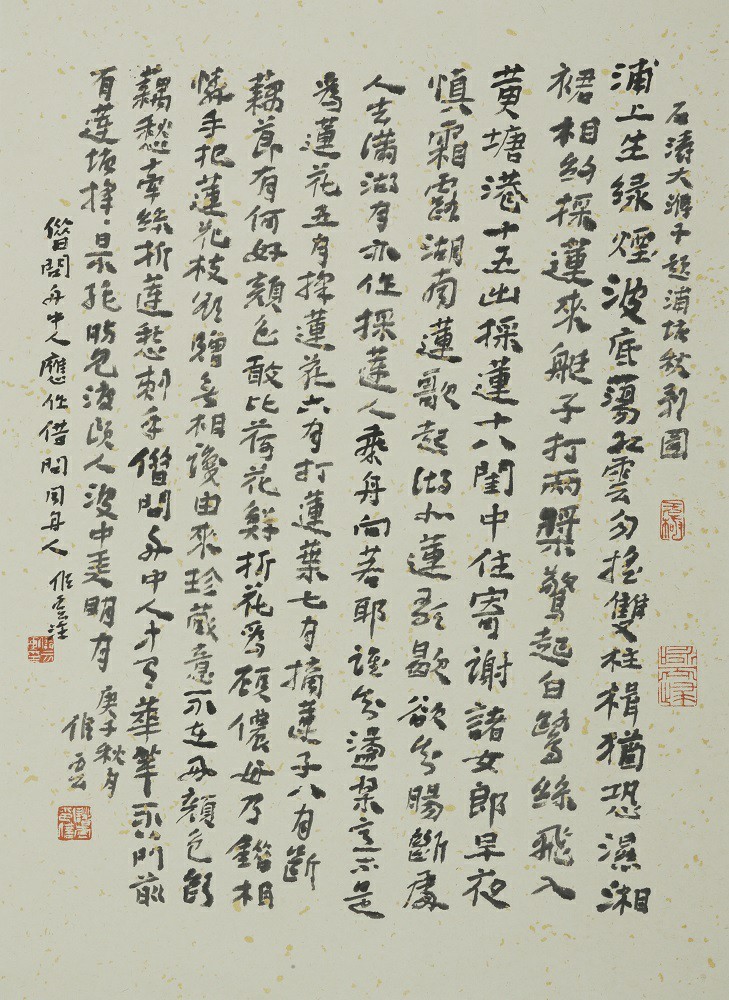 石濤大滌子題蒲塘秋影圖
浦上生綠煙波底蕩紅雲勿搖雙桂楫猶恐濕湘
裙相約採蓮來艇子打兩槳驚起白鷺絲飛入
黃塘港十五出採蓮十八閨中住寄謝諸女郎早夜
慎霜露湖南蓮歌起湖北蓮歌歇欲知腸斷處
人去滿湖月亦作採蓮人乘舟向若耶誰知盪槳意不是
為蓮花五月採蓮花六月打蓮葉七月摘蓮子八月斷
藕節有何好顏色敢比荷花鮮折花為顧儂毋乃錯相
憐手把蓮花枝欲贈無相識由來珍藏意不在好顏色斷
藕愁牽絲折蓮愁刺手借問舟中人才了華筆不門前
有蓮塘 是 波中 明月
借問舟中人應作借問同舟人 
庚子秋月